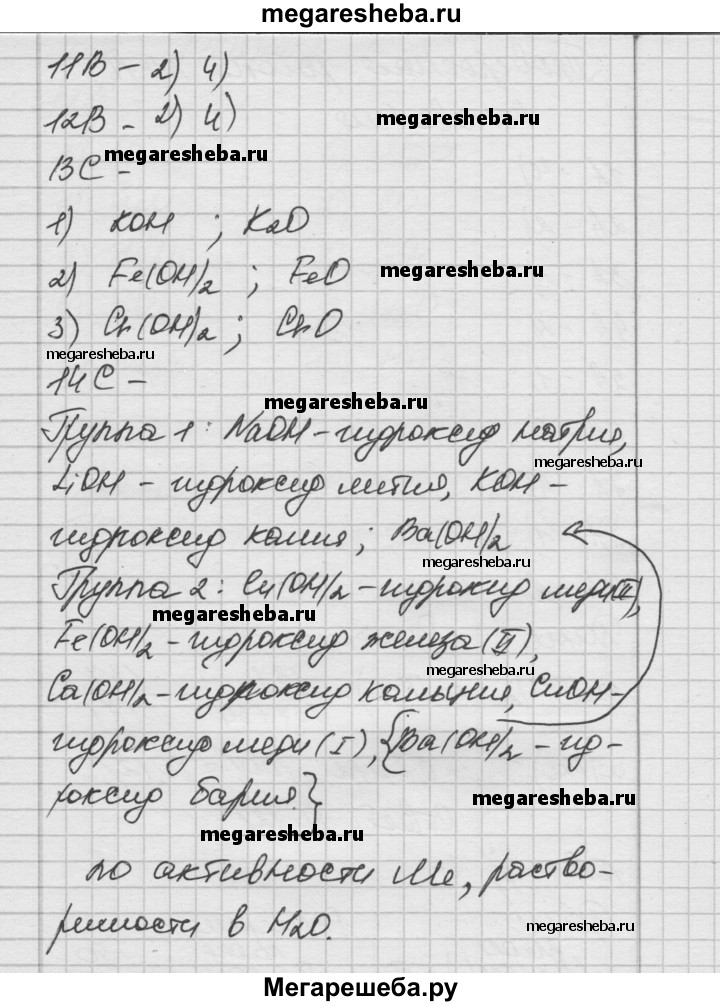 megaresheba.ru
11В - 2) 4)
12В - 2) 4)
megaresheba.ru
megaresheba.ru
13С -
1) KOH ; K2O
2) Fe(OH)2 ; FeO
megaresheba.ru
3) Cr(OH)2 ; CrO
megaresheba.ru
14С -
megaresheba.ru
Группа 1: NaOH - гидроксид натрия,
megaresheba.ru
LiOH - гидроксид лития, KOH -
гидроксид калия; Ba(OH)2
megaresheba.ru
Группа 2: Cu(OH)2 - гидроксид меди(II),
megaresheba.ru
Fe(OH)2 - гидроксид железа (II),
megaresheba.ru
Ca(OH)2 - гидроксид кальция, CuOH -
гидроксид меди (I), {Ba(OH)2 - гид-
роксид бария}
megaresheba.ru
megaresheba.ru
по активности Me, раство-
римости в H2O.
megaresheba.ru
Мегарешеба.ру